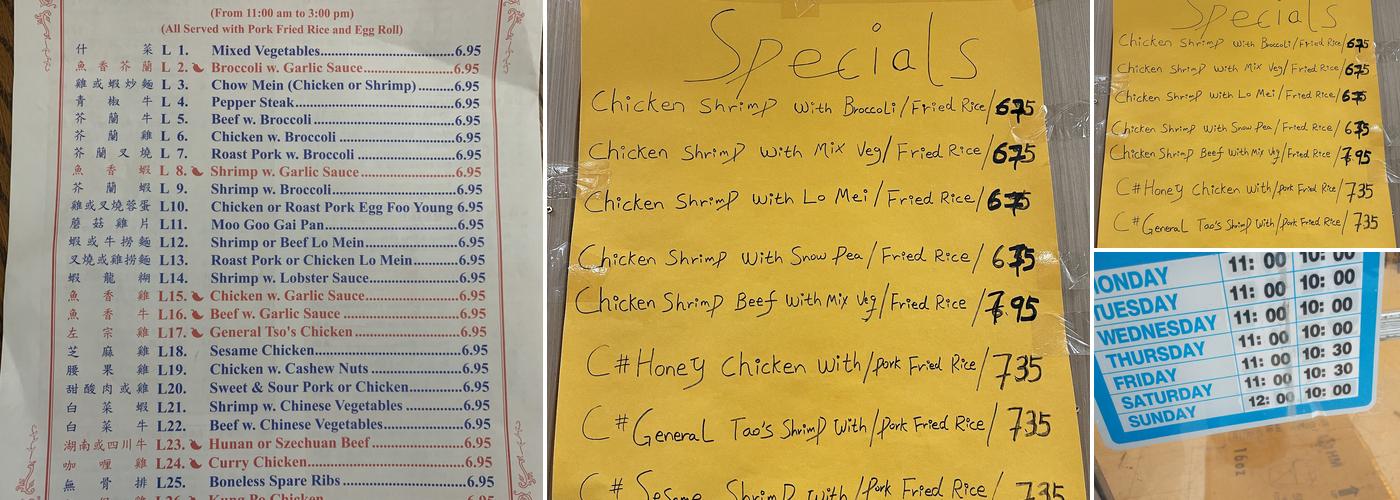 (From 11:00 am to 3:00 pm)
(All Served with Pork Fried Rice and Egg Roll)
什菜 L 1. Mixed Vegetables 6.95
魚香芥蘭 L 2. Broccoli w. Garlic Sauce 6.95
雞或蝦炒麵 L 3. Chow Mein (Chicken or Shrimp) 6.95
青椒牛 L 4. Pepper Steak 6.95
芥蘭牛 L 5. Beef w. Broccoli 6.95
芥蘭雞 L 6. Chicken w. Broccoli 6.95
芥蘭叉燒 L 7. Roast Pork w. Broccoli 6.95
魚香蝦 L 8. Shrimp w. Garlic Sauce 6.95
芥蘭蝦 L 9. Shrimp w. Broccoli 6.95
雞或叉燒蓉蛋 L10. Chicken or Roast Pork Egg Foo Young 6.95
蘑菇雞片 L11. Moo Goo Gai Pan 6.95
蝦或牛撈麵 L12. Shrimp or Beef Lo Mein 6.95
叉燒或雞撈麵 L13. Roast Pork or Chicken Lo Mein 6.95
蝦龍糊 L14. Shrimp w. Lobster Sauce 6.95
魚香雞 L15. Chicken w. Garlic Sauce 6.95
魚香牛 L16. Beef w. Garlic Sauce 6.95
左宗雞 L17. General Tso's Chicken 6.95
芝麻雞 L18. Sesame Chicken 6.95
腰果雞 L19. Chicken w. Cashew Nuts 6.95
甜酸肉或雞 L20. Sweet & Sour Pork or Chicken 6.95
白菜蝦 L21. Shrimp w. Chinese Vegetables 6.95
白菜牛 L22. Beef w. Chinese Vegetables 6.95
湖南或四川牛 L23. Hunan or Szechuan Beef 6.95
咖喱雞 L24. Curry Chicken 6.95
無骨排 L25. Boneless Spare Ribs 6.95
Kung Po Chicken 6.95
Specials
Chicken Shrimp With Broccoli/Fried Rice/675
Chicken Shrimp With Mix Veg/Fried Rice/675
Chicken Shrimp With Lo Mei/Fried Rice/675
Chicken Shrimp With Snow Pea/Fried Rice/675
Chicken Shrimp Beef With Mix Veg/Fried Rice/7.95
C#Honey Chicken With/pork Fried Rice/735
C#General Tao's Shrimp With/Pork Fried Rice/735
C# Sesame Shrimp With/Pork Fried Rice/735
Specials
Chicken Shrimp With Broccoli/Fried Rice/675
Chicken Shrimp With Mix Veg/Fried Rice/675
Chicken Shrimp With Lo Mei/Fried Rice/675
Chicken Shrimp With Snow Pea/Fried Rice/675
Chicken Shrimp Beef With Mix Veg/Fried Rice/7.95
C#Honey Chicken With/pork Fried Rice/735
C#General Tao's Shrimp With/Pork Fried Rice/735
MONDAY 11:00 10:00
TUESDAY 11:00 10:00
WEDNESDAY 11:00 10:00
THURSDAY 11:00 10:00
FRIDAY 11:00 10:30
SATURDAY 11:00 10:30
SUNDAY 12:00 10:00
16oz